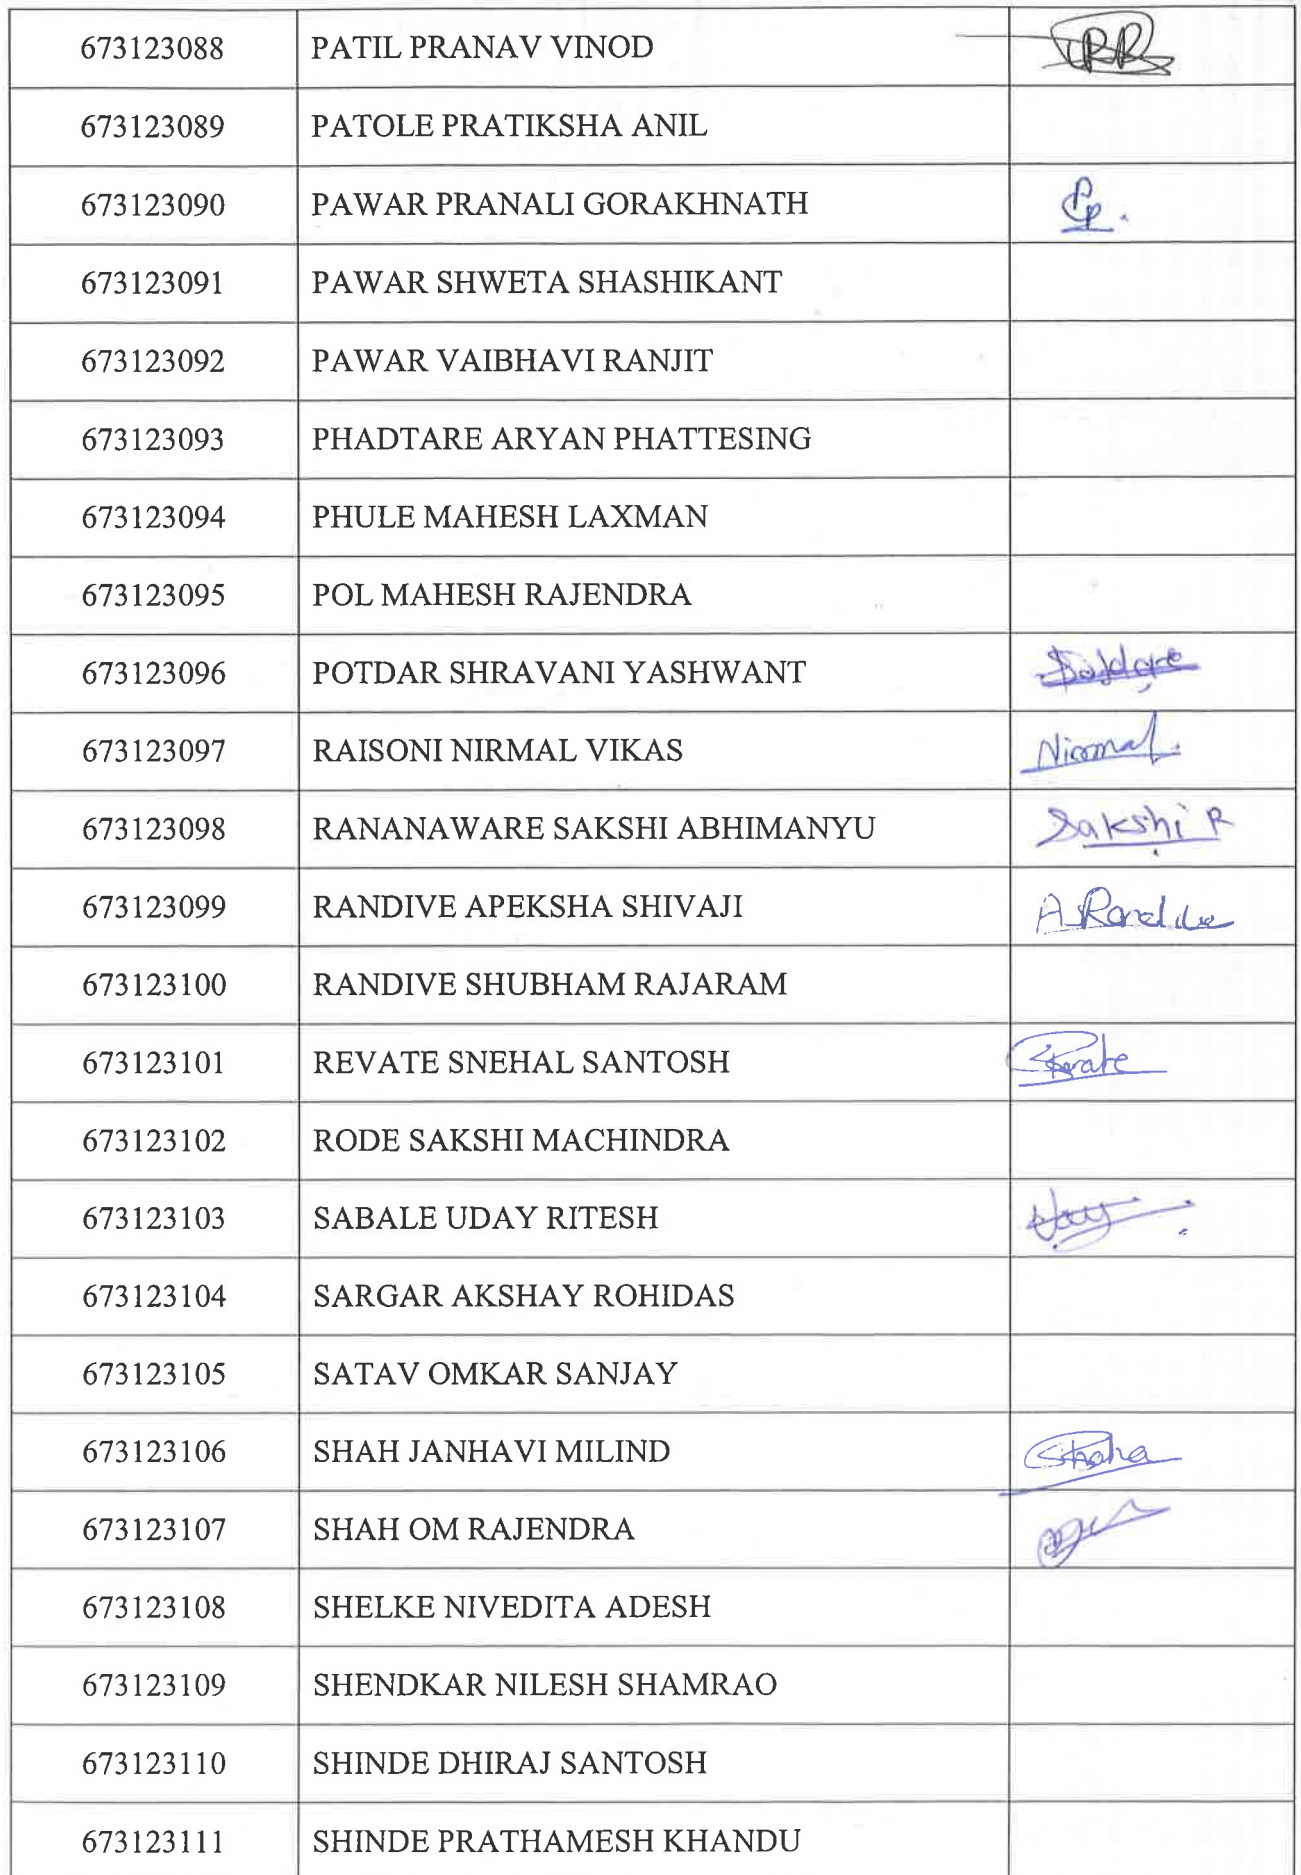 673123088 PATIL PRANAV VINOD
673123089 PATOLE PRATIKSHA ANIL
673123090 PAWAR PRANALI GORAKHNATH
673123091 PAWAR SHWETA SHASHIKANT
673123092 PAWAR VAIBHAVI RANJIT
673123093 PHADTARE ARYAN PHATTESING
673123094 PHULE MAHESH LAXMAN
673123095 POL MAHESH RAJENDRA
673123096 POTDAR SHRAVANI YASHWANT
673123097 RAISONI NIRMAL VIKAS Nirmal
673123098 RANANAWARE SAKSHI ABHIMANYU Sakshi R
673123099 RANDIVE APEKSHA SHIVAJI A Randive
673123100 RANDIVE SHUBHAM RAJARAM
673123101 REVATE SNEHAL SANTOSH
673123102 RODE SAKSHI MACHINDRA
673123103 SABALE UDAY RITESH
673123104 SARGAR AKSHAY ROHIDAS
673123105 SATAV OMKAR SANJAY
673123106 SHAH JANHAVI MILIND
673123107 SHAH OM RAJENDRA
673123108 SHELKE NIVEDITA ADESH
673123109 SHENDKAR NILESH SHAMRAO
673123110 SHINDE DHIRAJ SANTOSH
673123111 SHINDE PRATHAMESH KHANDU